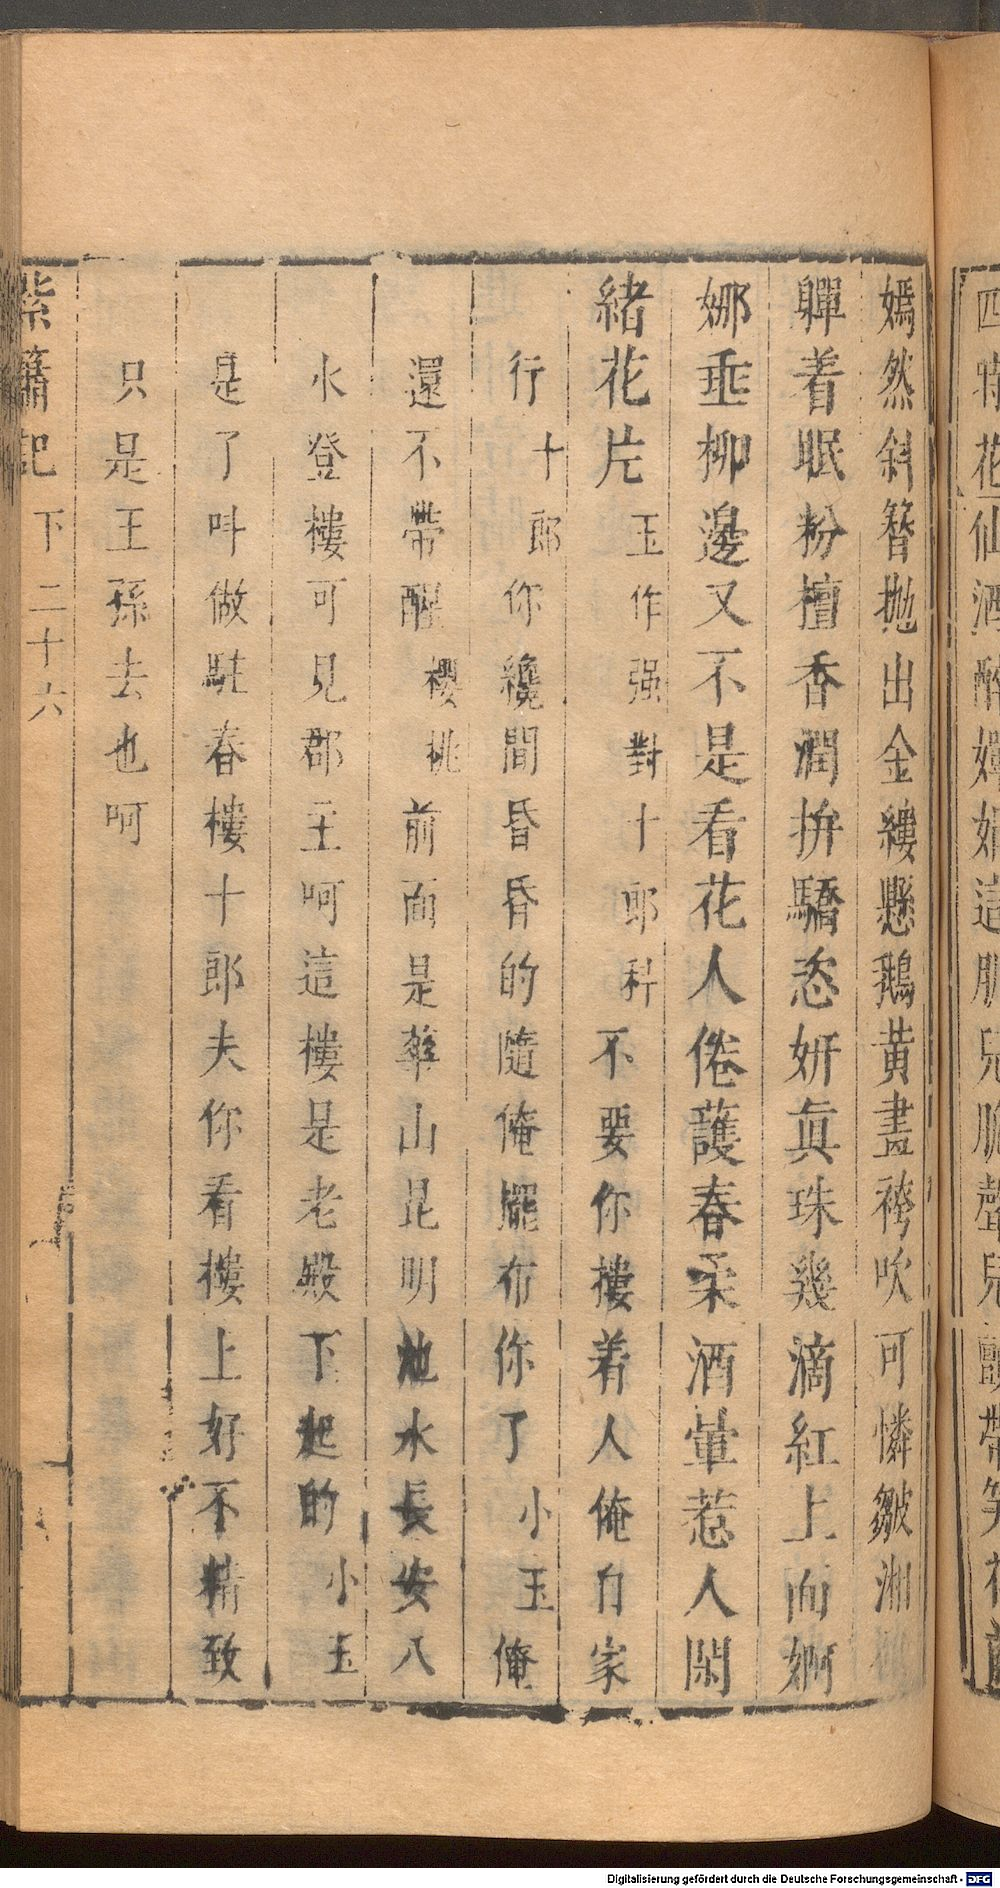 四時花仙酒醉嬋娟這腼兒腼聲兒顫帶笑花
嫣然斜簪抛出金縷懸鵝黃畫袴吹可憐皺湘
軃着眠粉檀香潤拚驕恣妍真珠幾滴紅上面婀
娜垂柳邊又不是看花人倦護春柔酒暈惹人閑
緒花片玉作强對十郎科不要你摟着人俺自家
行十郎你纔間昏昏的隨俺擺布你了小玉俺
還不帶醒櫻桃前面是華山昆明池水長安八
水登樓可見郡主呵這樓是老殿下起的小玉
是了叫做駐春樓十郎夫你看樓上好不精致
只是王孫去也呵
紫簫記 下 二十六
Digitalisierung gefördert durch die Deutsche Forschungsgemeinschaft - DFG